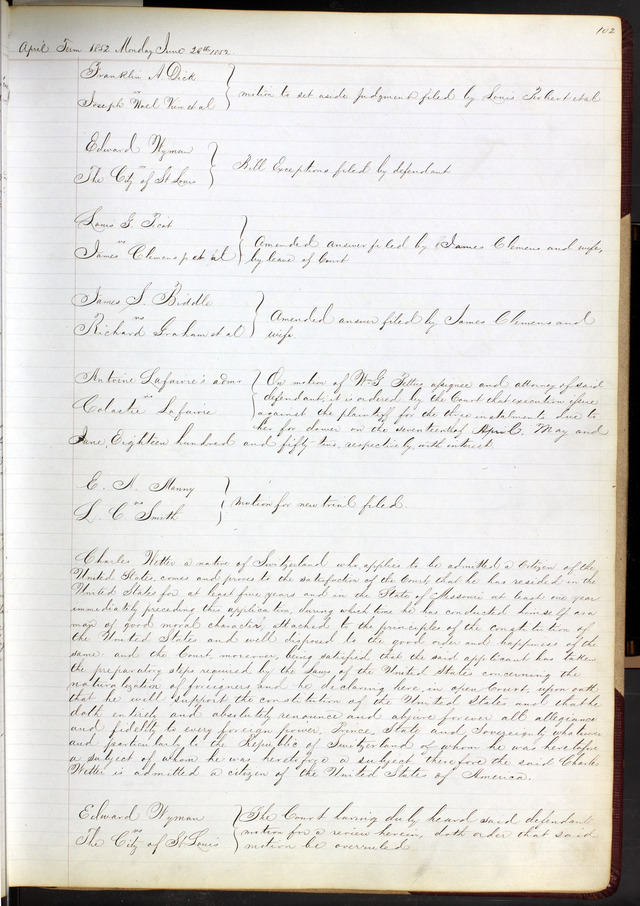 102
April Term 1852 Monday June 28th 1852
Franklin A Dick
vs
Joseph Wael et al
motion to set aside Judgment filed by Louis et al
Edward Wyman
vs
The City of St Louis
Bill Exceptions filed by defendant
Louis G. Picot
vs
James Clemens jr et al
Amended answer filed by James Clemens and wife,
by leave of Court
James S. Biddle
vs
Richard Graham et al
Amended answer filed by James Clemens and
wife.
Antoine Lafaivre's admr
vs
Celastie Lafaivre
On motion of Wm G assignee and attorney of said
defendant, it is ordered by the Court that execution issue
against the plaintiff for the three instalments due to
her for dower on the seventeenth of April, May and
June Eighteen hundred and fifty-two, respectively with interest.
E. A. Manny
vs
L. C. Smith
Motion for new trial filed.
Charles Wetter a native of Switzerland who applies to be admitted a Citizen of the
United States, comes and proves to the satisfaction of the Court, that he has resided in the
United States for at least five years and in the State of Missouri at least one year
immediately preceding this application, during which time he has conducted himself as a
man of good moral character, attached to the principles of the constitution of
the United States and well disposed to the good order and happiness of the
same and the Court, moreover, being satisfied that the said applicant has taken
the preparatory steps required by the Laws of the United States concerning the
naturalization of foreigners and he declaring here, in open Court, upon oath
that he will support the constitution of the United States and that he
doth entirely and absolutely renounce and abjure forever all allegiance
and fidelity to every foreign power, Prince, State and Sovereignty whatsoever
and particularly to the Republic of Switzerland of whom he was heretofore
a subject of whom he was heretofore a subject therefore the said Charles
Wetter is admitted a citizen of the United States of America.
Edward Wyman
vs
The City of St Louis
The Court having duly heard said defendants
motion for a review herein, doth order that said
motion be overruled